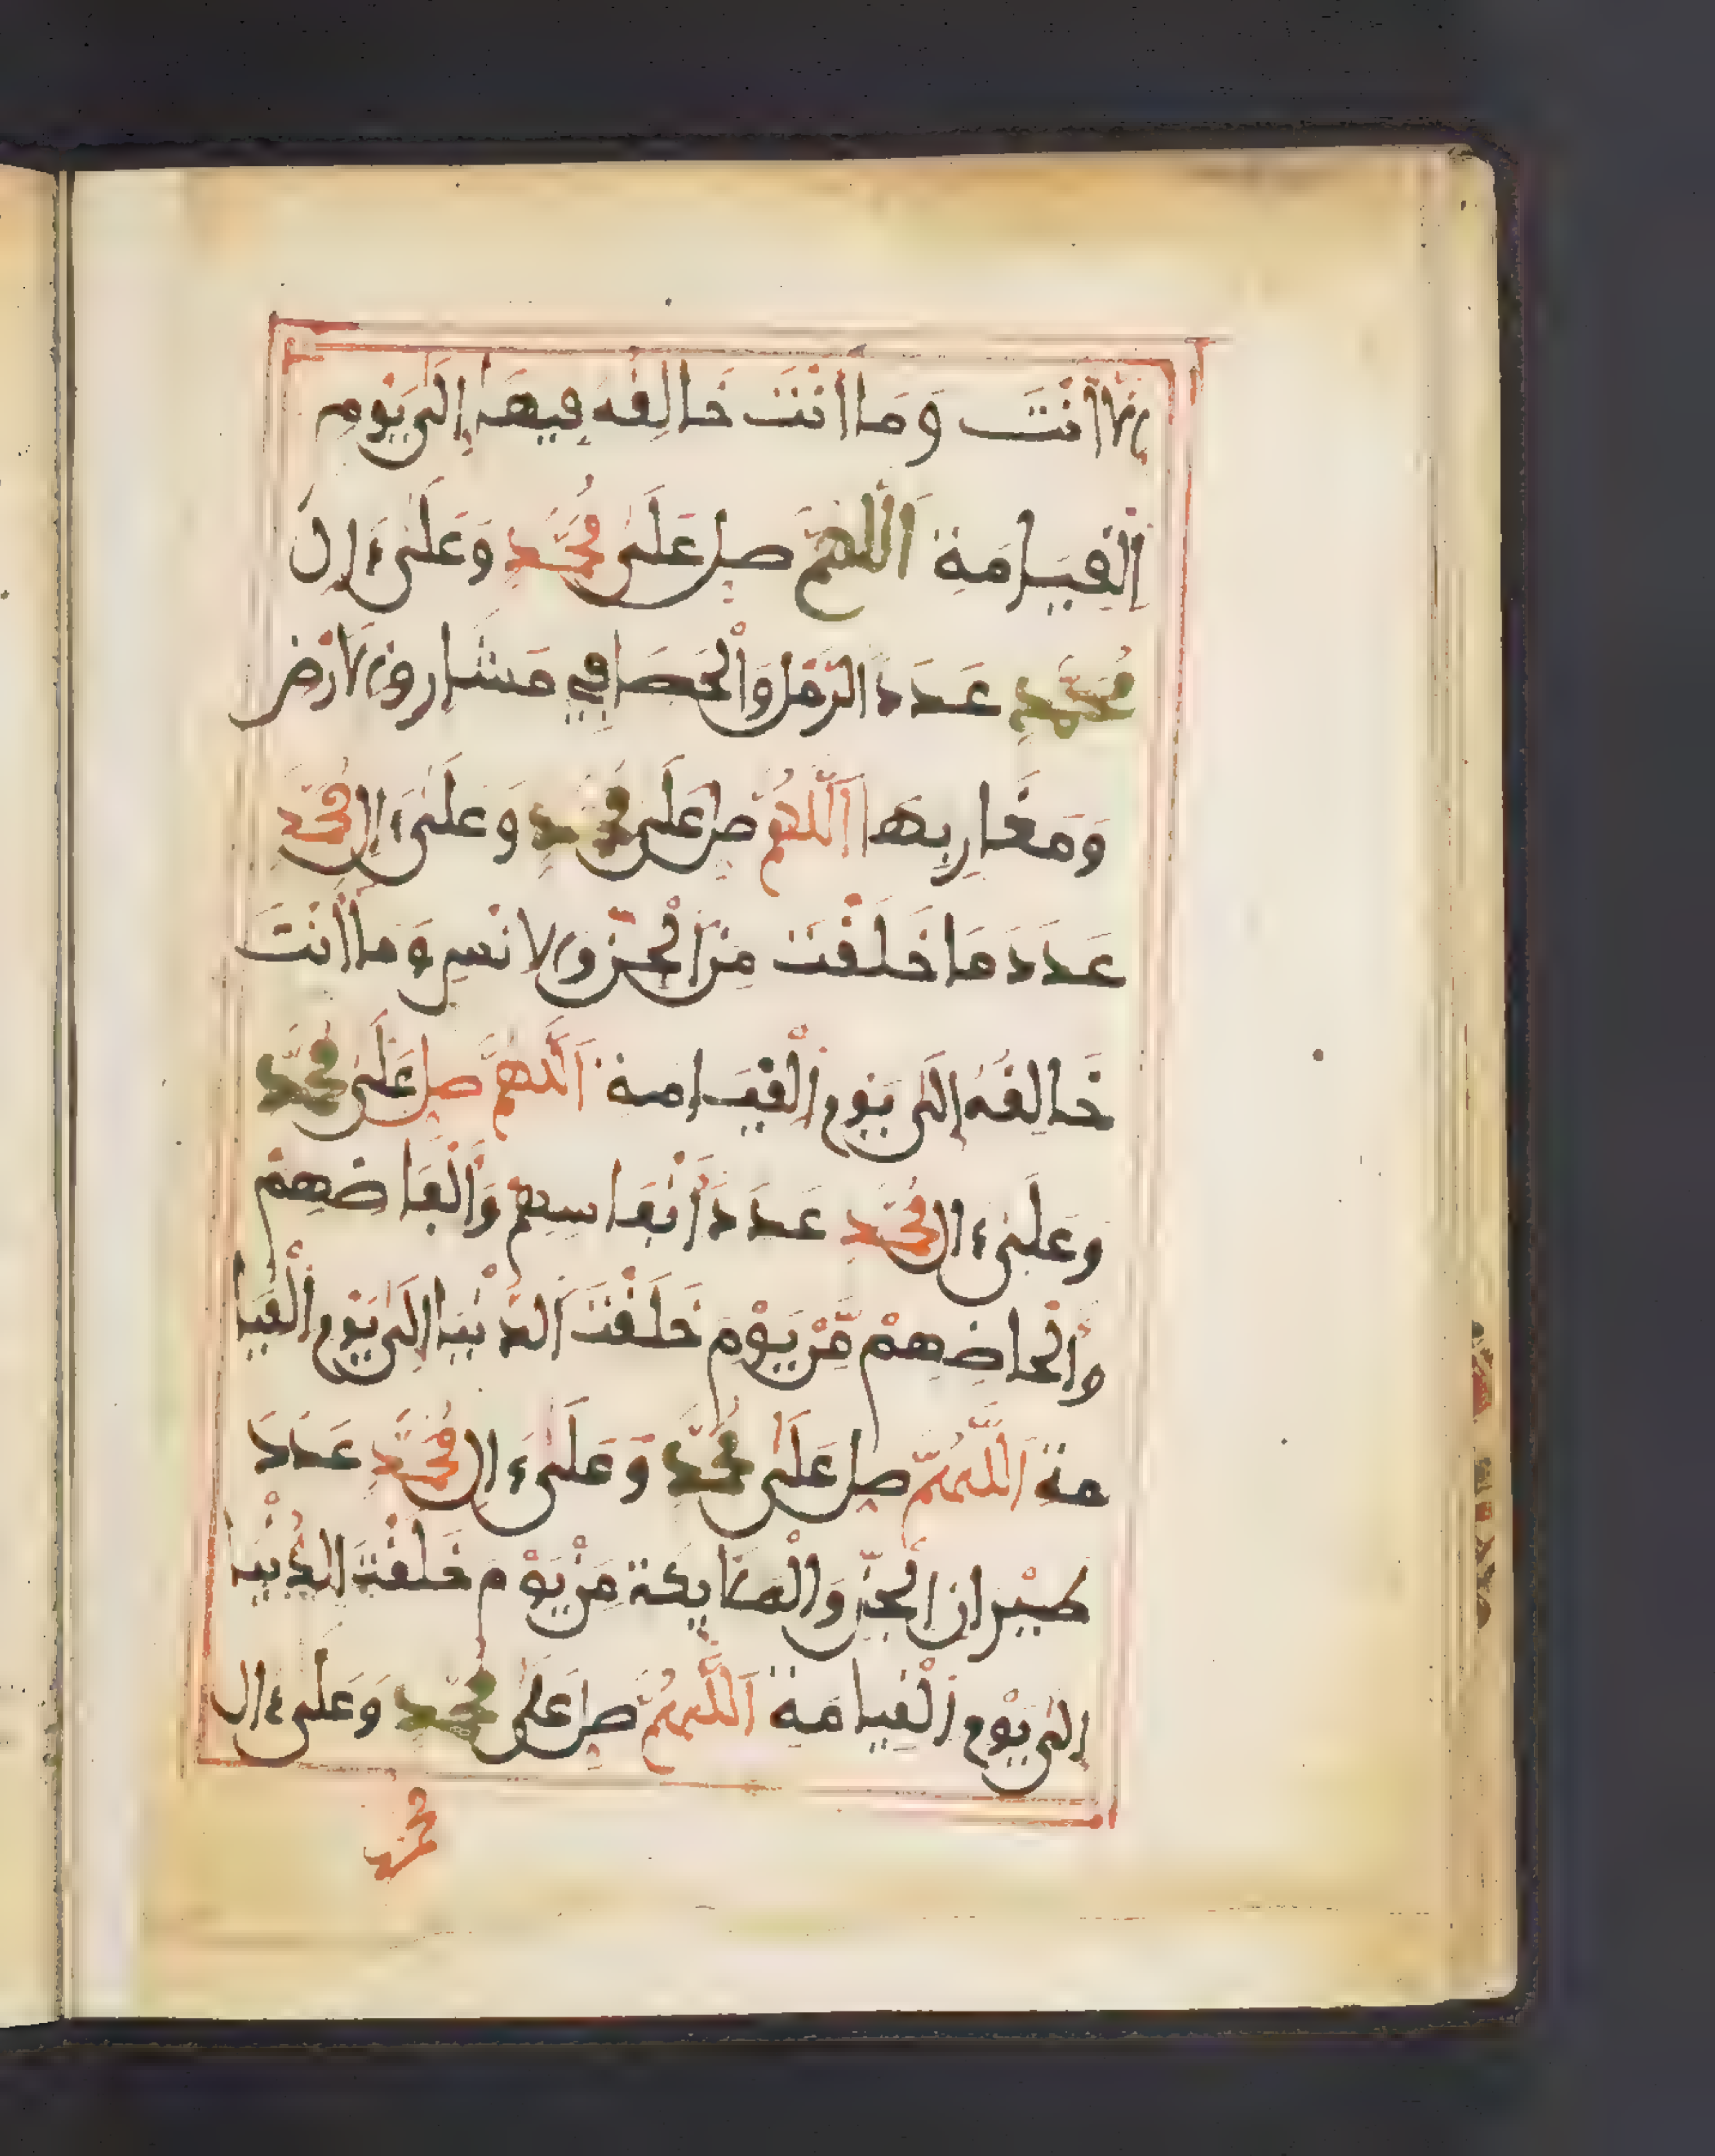 إلا أنت وما أنت خالقه فيها إلى يوم
القيامة اللهم صل على محمد وعلى ءال
محمد عدد الرمل والحصا في مشارق الارض
ومغاربها اللهم صل على محمد وعلى ءال محمد
عدد ما خلقت من الجن والانس وما أنت
خالقه إلى يوم القيامة اللهم صل على محمد
وعلى ءال محمد عدد أنفاسهم وألفاضهم
وألحاضهم من يوم خلقت الدنيا إلى يوم القيا
مة اللهم صل على محمد وعلى ءال محمد عدد
طيران الجن والملايكة من يوم خلقت الدنيا
إلى يوم القيامة اللهم صل على محمد وعلى ءال
محمد